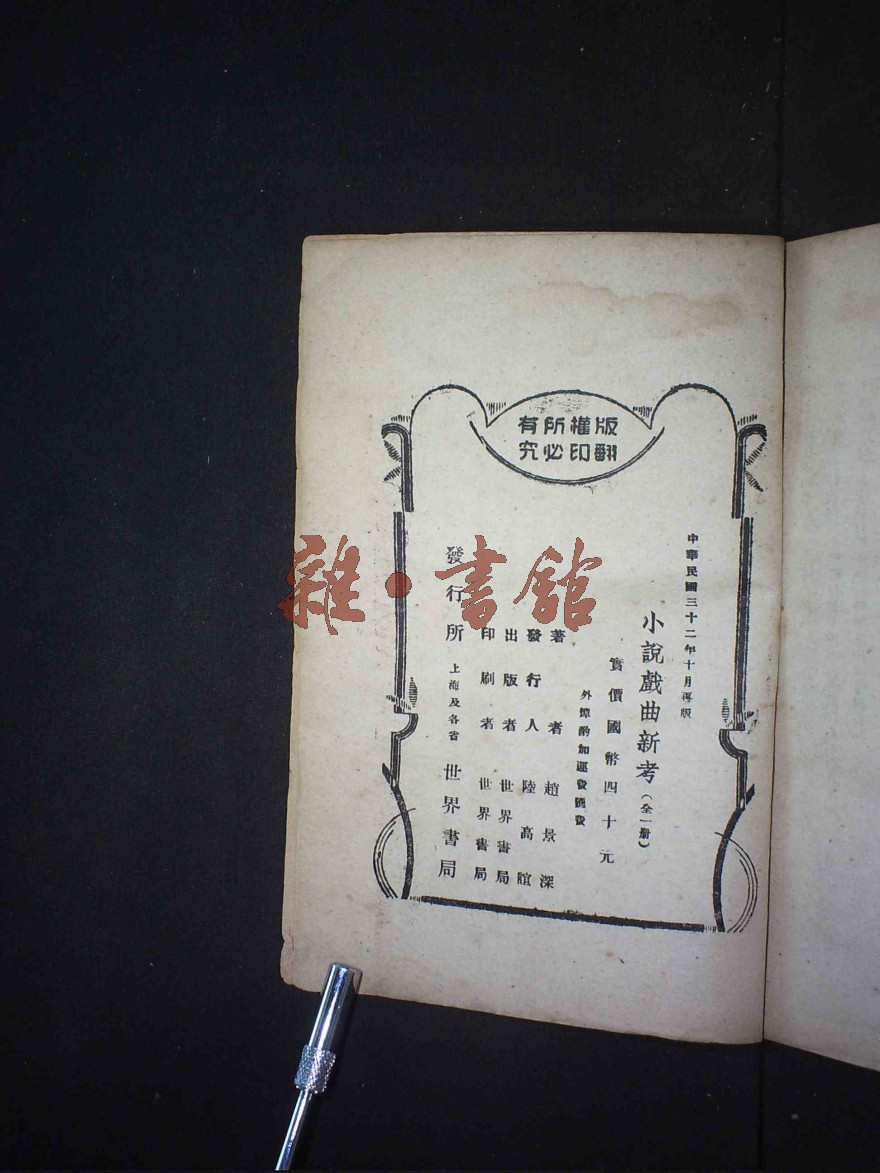 版權所有
翻印必究
中華民國三十二年十月再版
小說戲曲新考(全一册)
實價國幣四十元
外埠酌加運費匯費
著者 趙景深
發行人 陸高誼
出版者 世界書局
印刷者 世界書局
發行所 上海及各省 世界書局
雜·書館